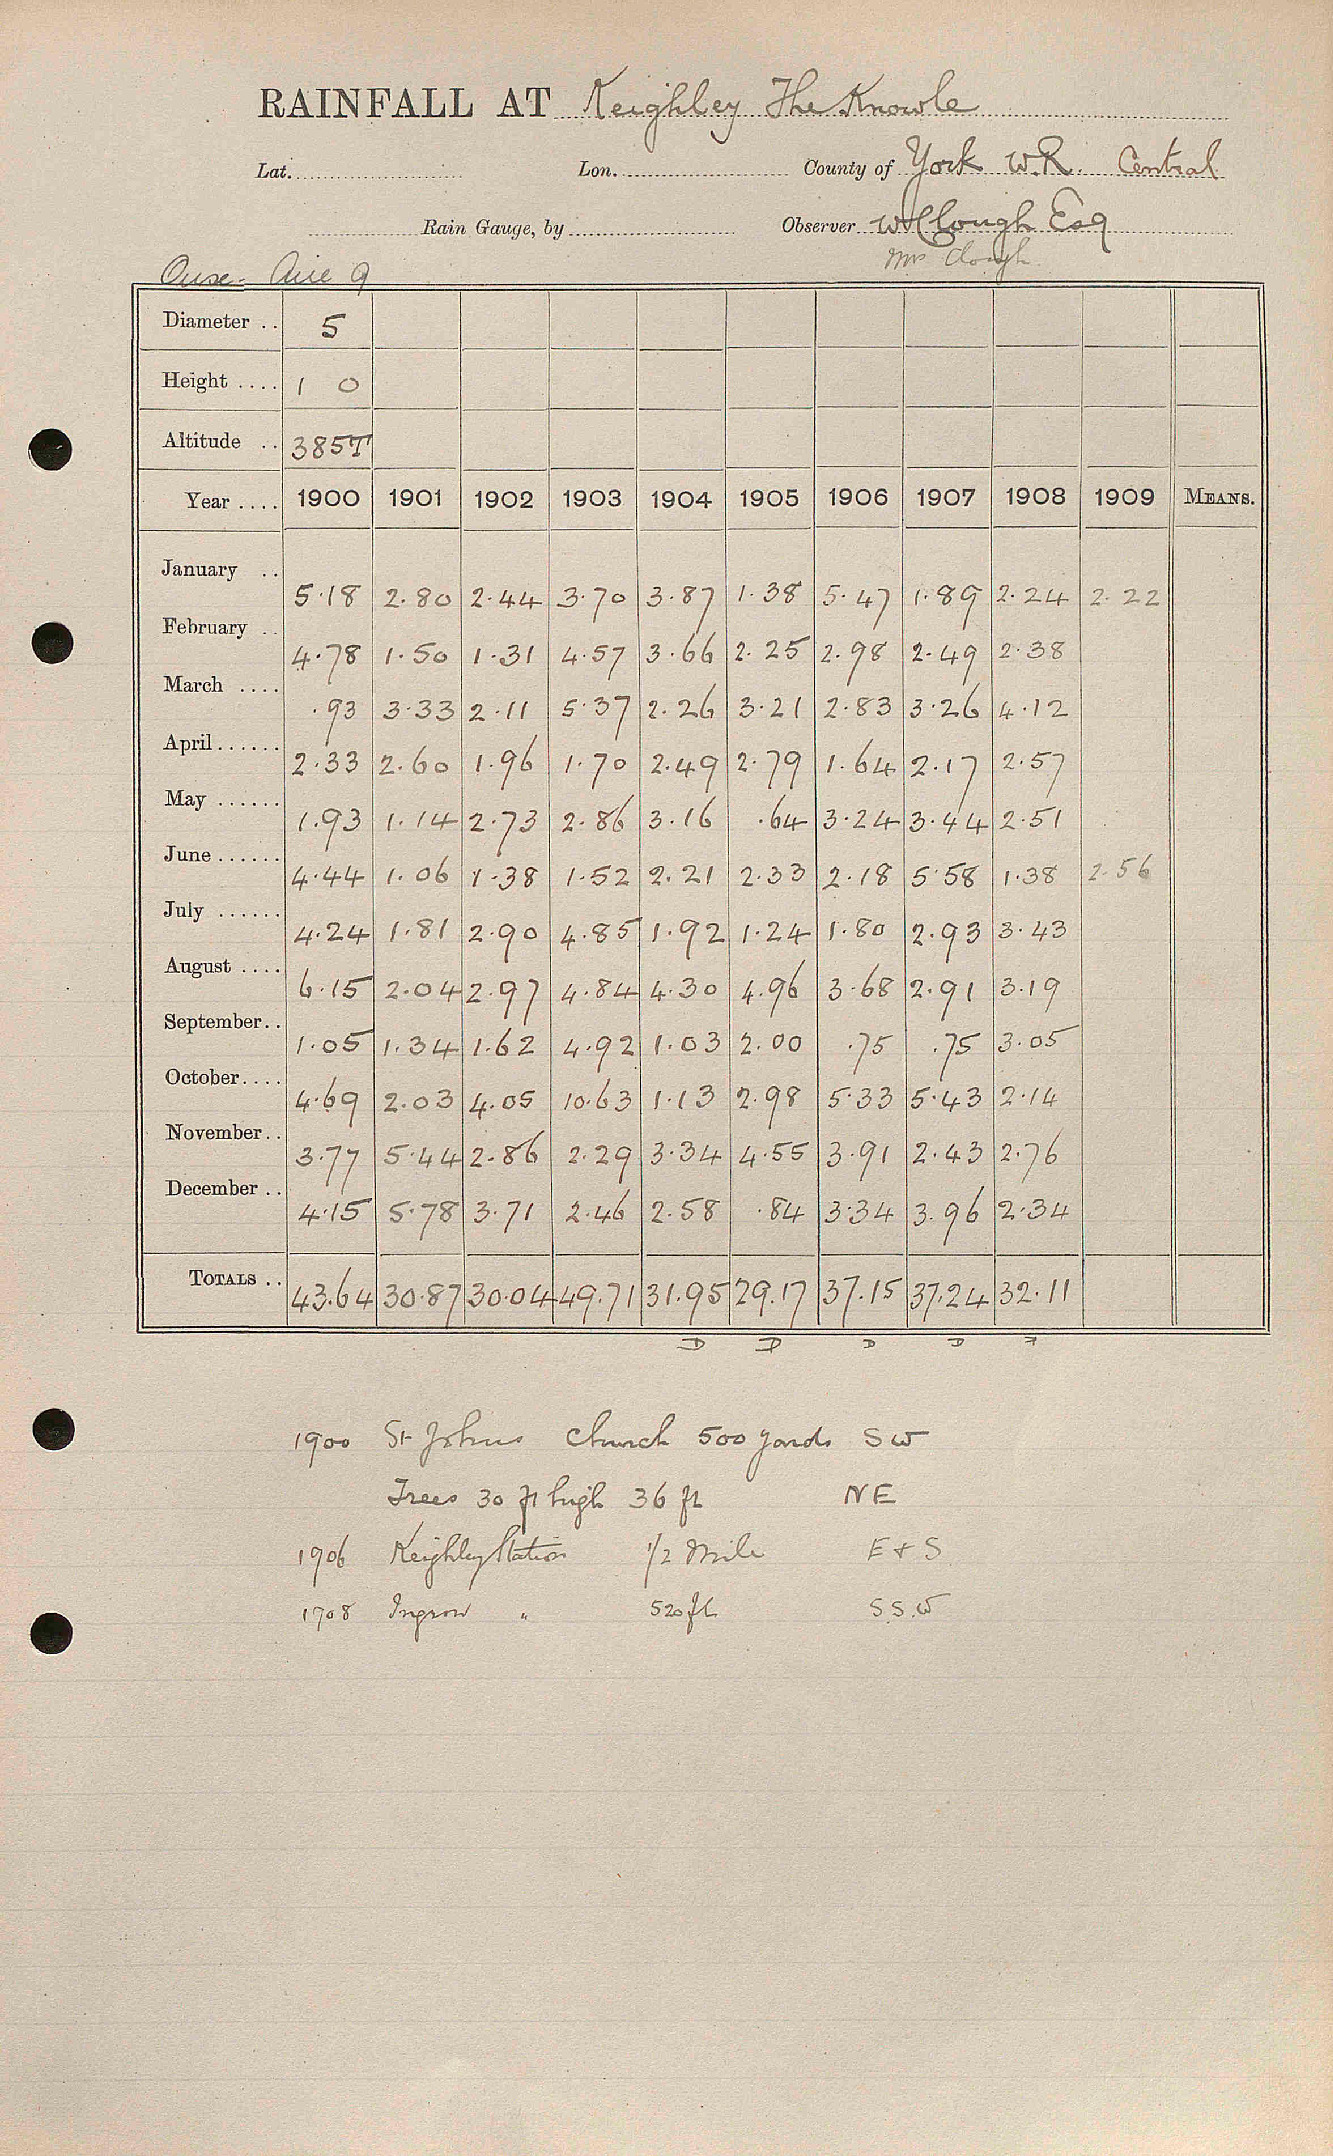 RAINFALL AT Keighley The Knowle
Lat. Lon. County of York W.R. Central
Rain Gauge, by Observer W Clough Esq
Mrs Clough
Ouse - Aire 9
Diameter .. 5
Height .... 1 0
Altitude .. 385T
Year .... 1900 1901 1902 1903 1904 1905 1906 1907 1908 1909 MEANS.
January .. 5.18 2.80 2.44 3.70 3.87 1.38 5.47 1.89 2.24 2.22
February .. 4.78 1.50 1.31 4.57 3.66 2.25 2.98 2.49 2.38
March .... .93 3.33 2.11 5.37 2.26 3.21 2.83 3.26 4.12
April...... 2.33 2.60 1.96 1.70 2.49 2.79 1.64 2.17 2.57
May ...... 1.93 1.14 2.73 2.86 3.16 .64 3.24 3.44 2.51
June...... 4.44 1.06 1.38 1.52 2.21 2.33 2.18 5.58 1.38 2.56
July ...... 4.24 1.81 2.90 4.85 1.92 1.24 1.80 2.93 3.43
August .... 6.15 2.04 2.97 4.84 4.30 4.96 3.68 2.91 3.19
September.. 1.05 1.34 1.62 4.92 1.03 2.00 .75 .75 3.05
October.... 4.69 2.03 4.05 10.63 1.13 2.98 5.33 5.43 2.14
November.. 3.77 5.44 2.86 2.29 3.34 4.55 3.91 2.43 2.76
December .. 4.15 5.78 3.71 2.46 2.58 .84 3.34 3.96 2.34
TOTALS .. 43.64 30.87 30.04 49.71 31.95 29.17 37.15 37.24 32.11
D D D D
1900 St Johns Church 500 yards SW
Trees 30 ft high 36 ft NE
1906 Keighley Station 1/2 Mile E + S
1908 Ingrow " 520 ft S.S.W